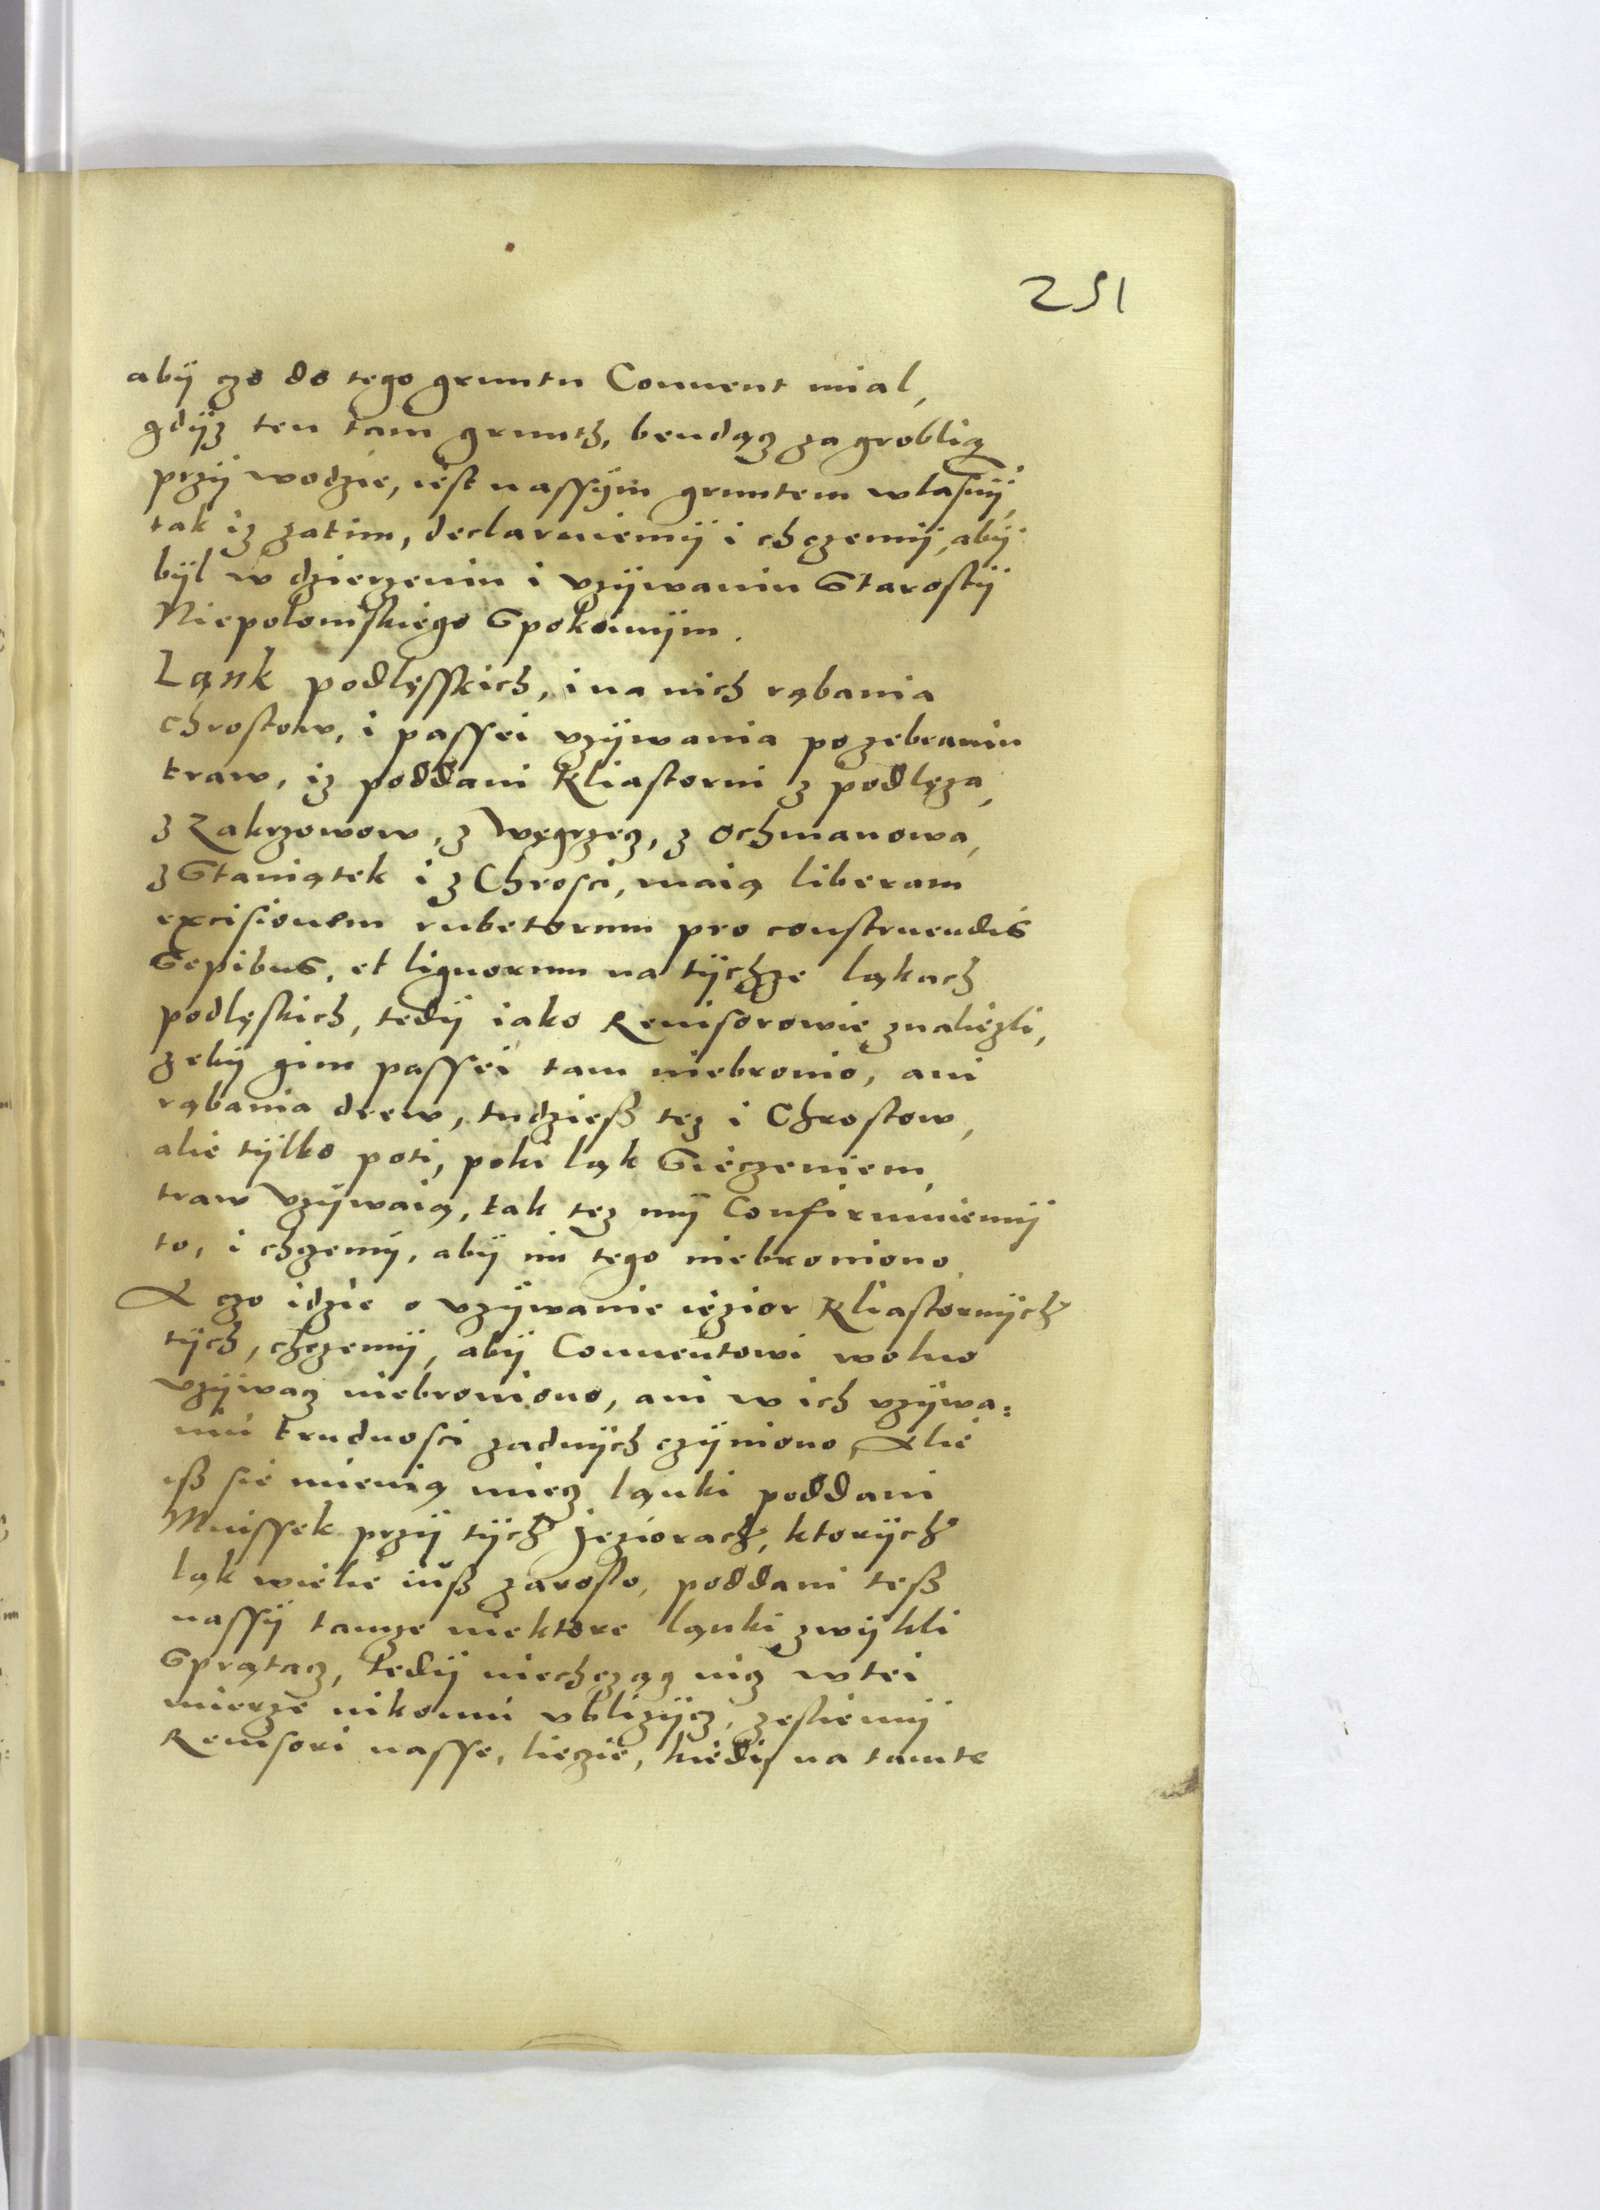 251
abÿ czo do tego gruntu Conuent mial,
gdÿz ten tam grunth, bendącz za groblią
przÿ wodzie, iest nassÿm gruntem wlasnÿ,
tak iz zatim, declaruiemÿ i chczemÿ, abÿ
bÿl w dzierzeniu i vzÿwaniu Starostÿ
Niepolomskiego Spokoinÿm.
Ląnk podlęsskich, i na nich rąbania
chrostow, i passei vzÿwania po zebraniu
traw, iz poddani Kliastorni z podlęza,
z Zakrzowow, z Węgrzcz, z Ochmanowa,
z Staniątek i z Chrosci, maią liberam
excisionem rubetorum pro construendis
Sepibus, et lignorum na tÿchze ląkach
podlęskich, tedÿ iako Reuisorowie znaliezli,
zebÿ gim passei tam niebronio, ani
rąbania drew, tudziesz tez i Chrostow,
alie tÿlko poti, poki ląk Sieczeniem,
traw vzÿwaią, tak tez mÿ Confirmuiemÿ
to, i chczemÿ, abÿ im tego niebroniono.
A czo idzie o vzÿwanie iezior Kliastornÿch
tÿch, chczemÿ, abÿ Conuentowi wolno
vzÿwacz niebroniono, ani w ich vzÿwa=
niu trudnosci zadnÿch czÿniono, Alie
isz sie mienią miecz ląnki poddani
Mnissek przÿ tÿch Jeziorach, ktorÿch
ląk wielie iusz zaroslo, poddani tesz
nassÿ tamze niektore ląnki zwÿkli
Sprątacz, tedÿ niechcząc nicz w tei
mierze nikomu vblizÿcz, zeslemÿ
Reuisori nasse, liezie, kiedÿ na tamte